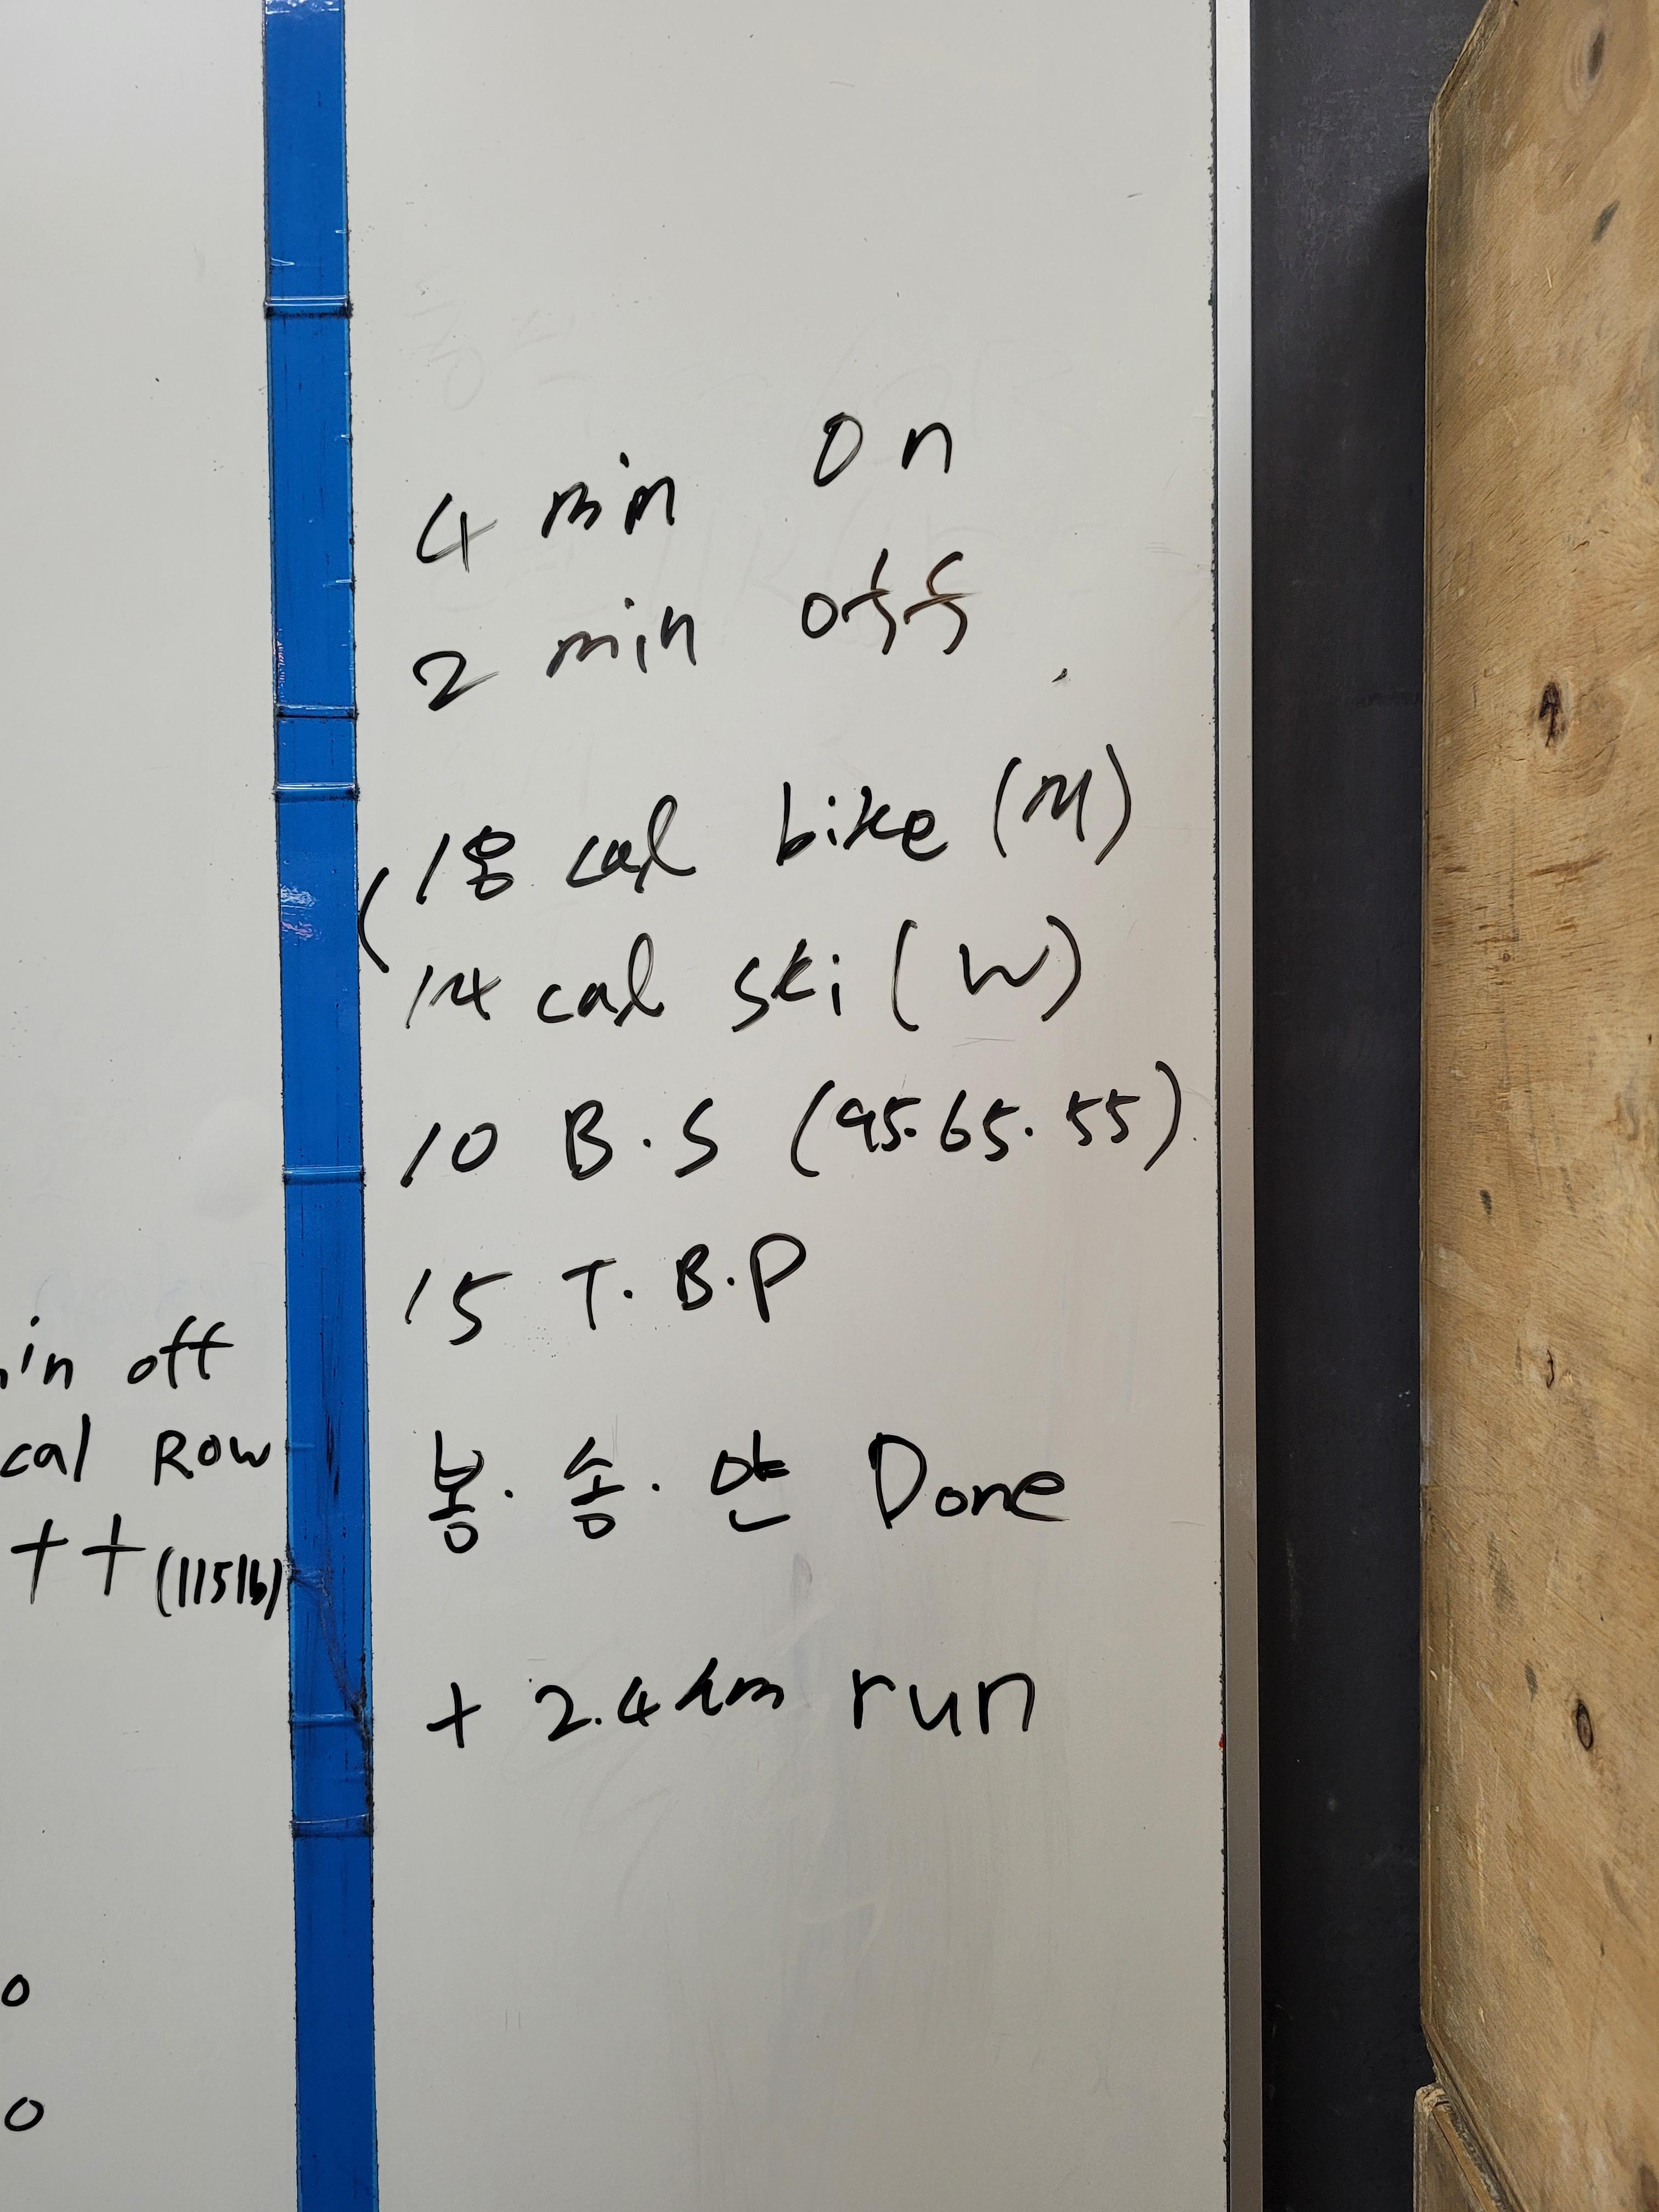 4 min on
2 min off
(18 cal bike (M)
14 cal ski (W)
10 B.S (95.65.55)
15 T.B.P
봉.송.얀 Done
+ 2.4km run
in off
cal Row
++ (115lb)
0
0